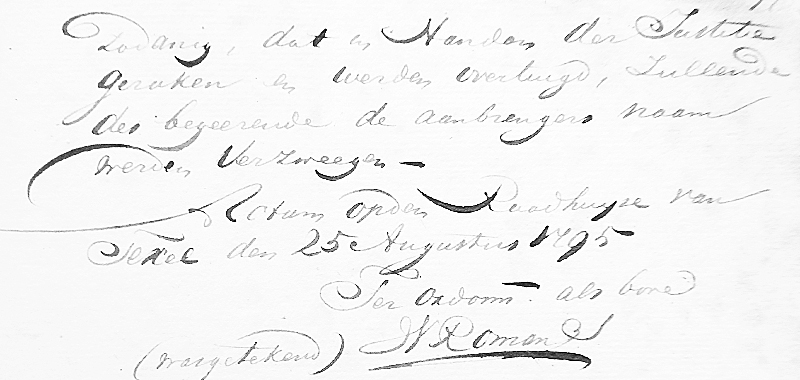 Zodanig, dat in Handen der Justitie
geraken en werden overtuigd, Zullende
des begeerende de aanbrengers naam
werden Verzweegen —
Actum op den Raadhuyse van
Texel den 25 Augustus 1795
Ter ordonn: als boven
(was getekend) W Roman